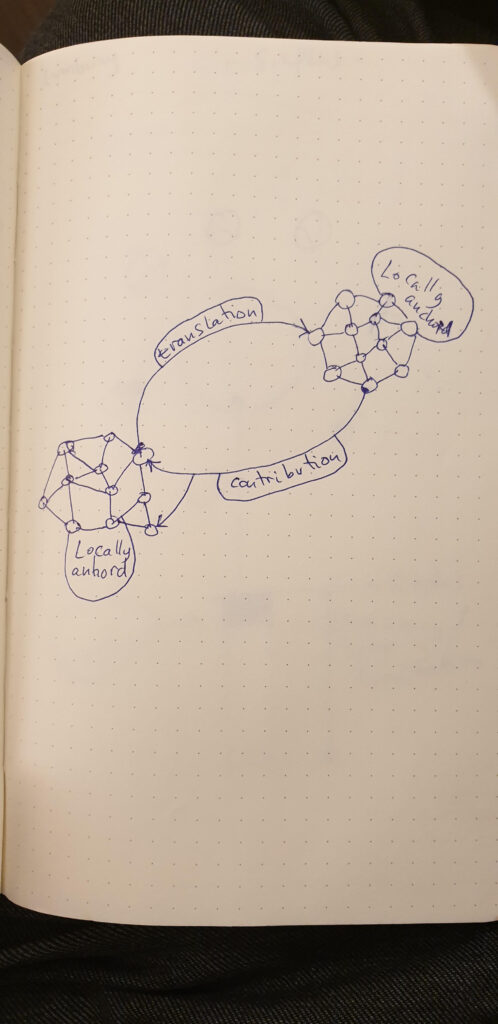 Locally
anchord
translation
contribution
Locally
anhord